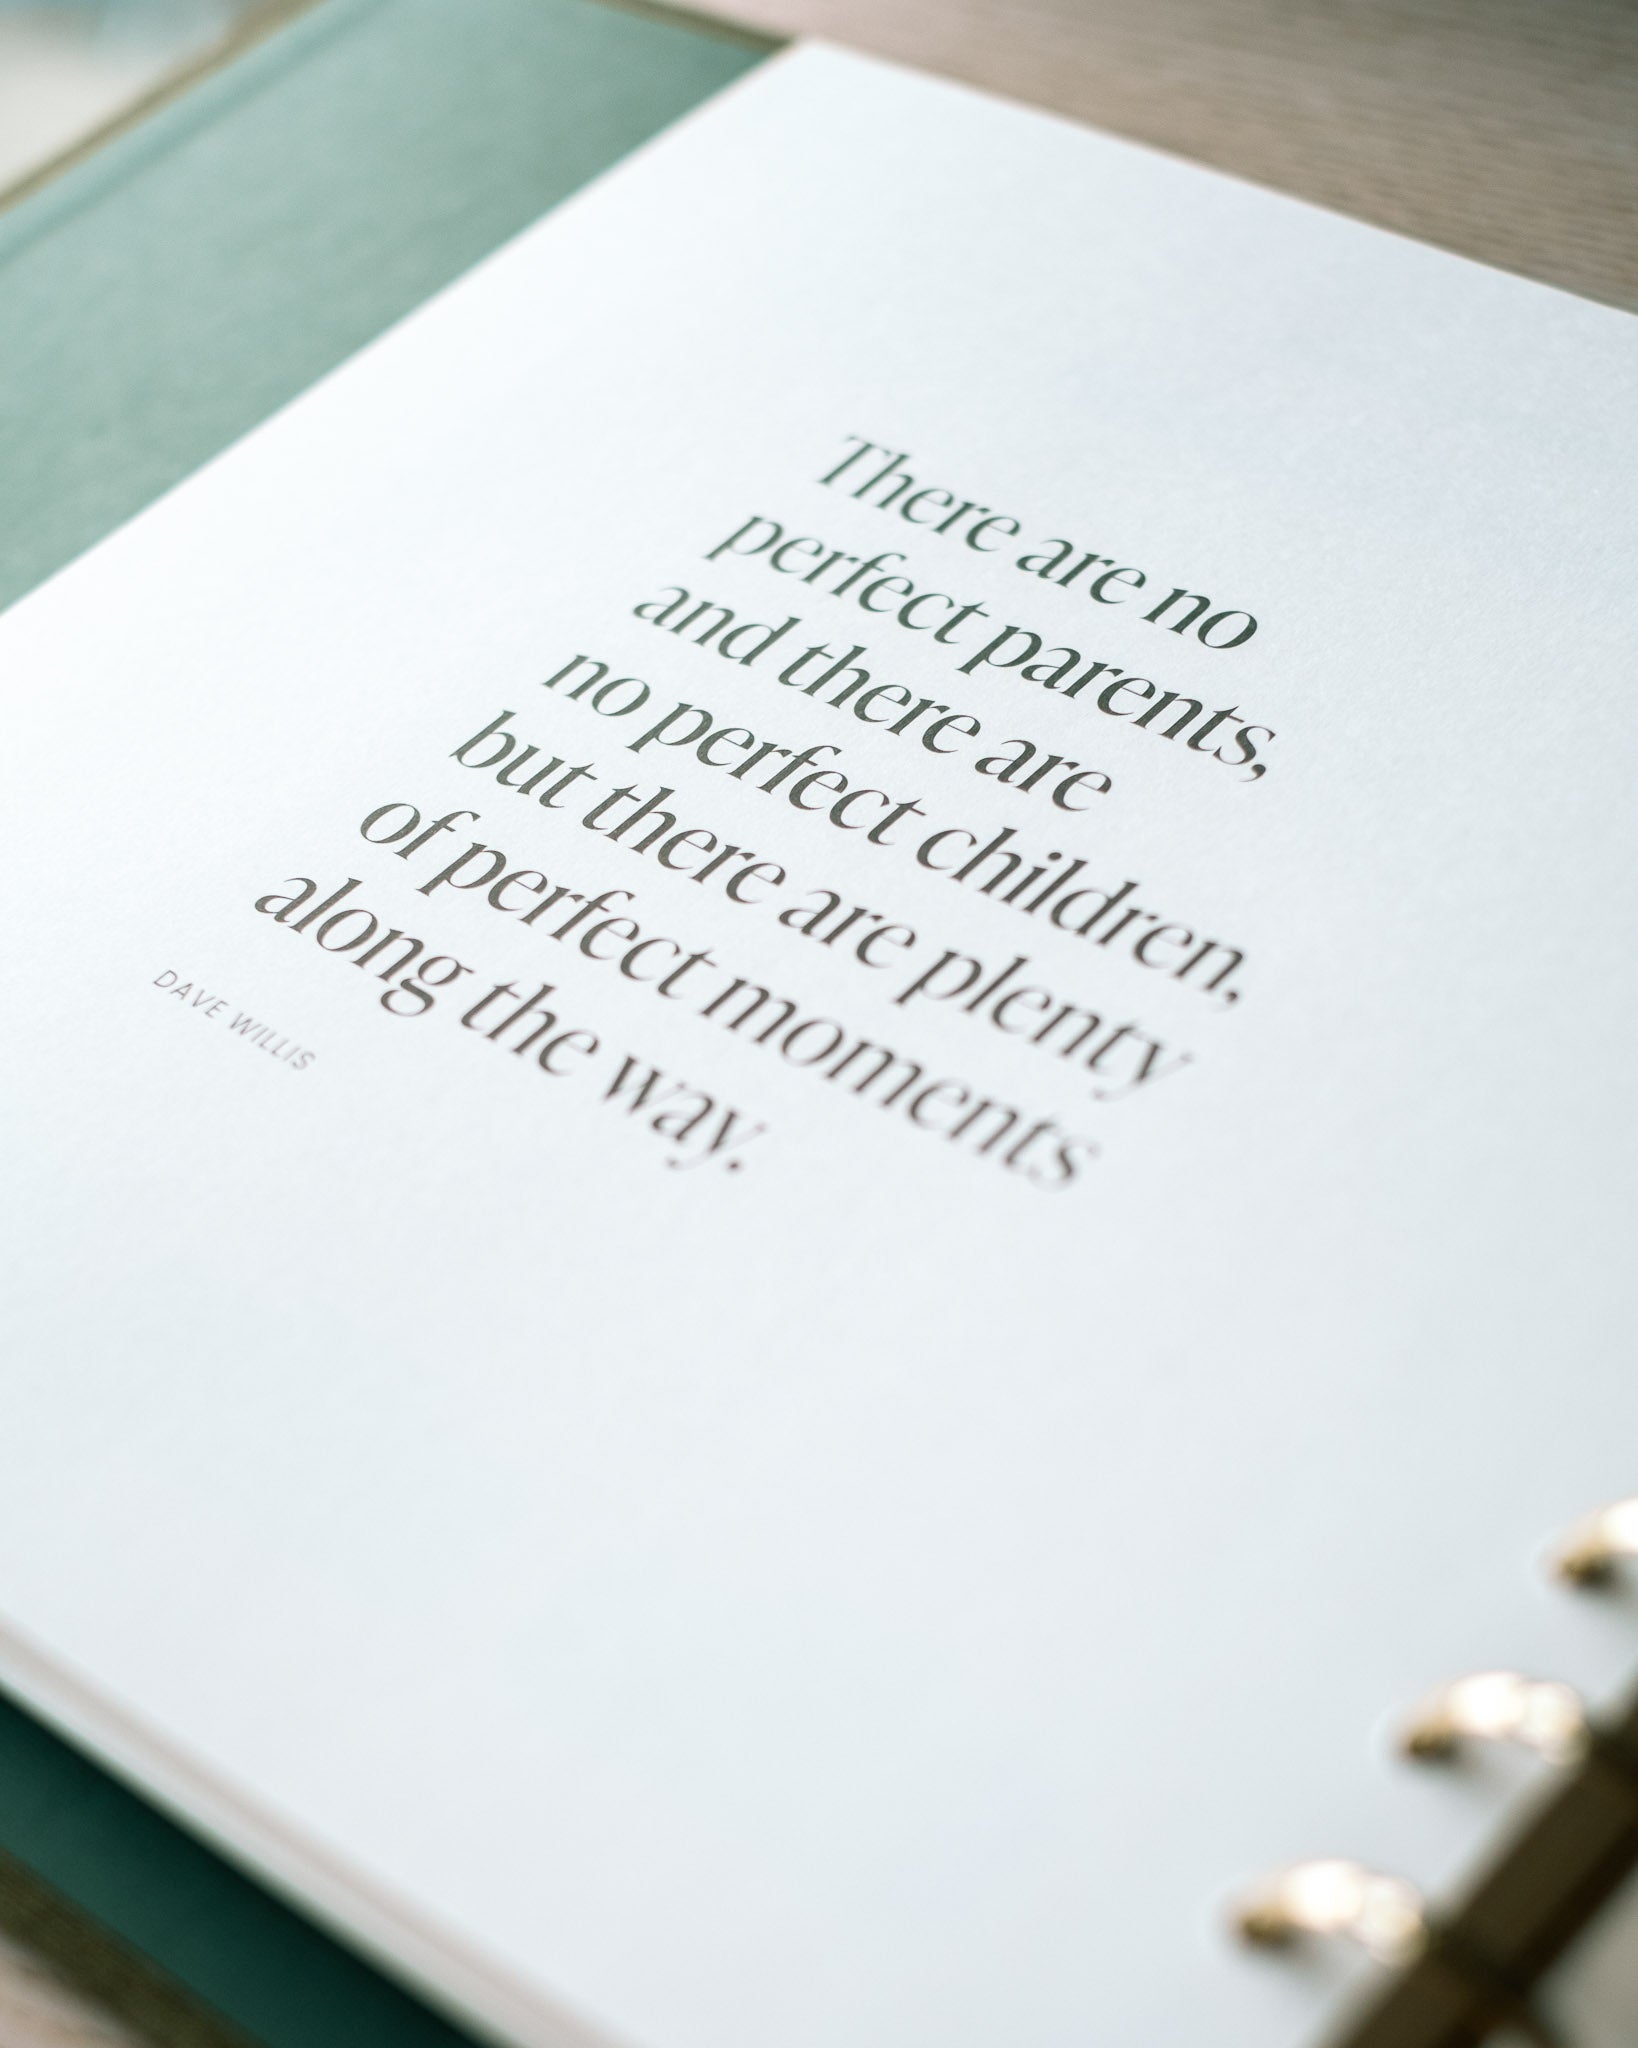 There are no
perfect parents,
and there are
no perfect children,
but there are plenty
of perfect moments
along the way.
DAVE WILLIS